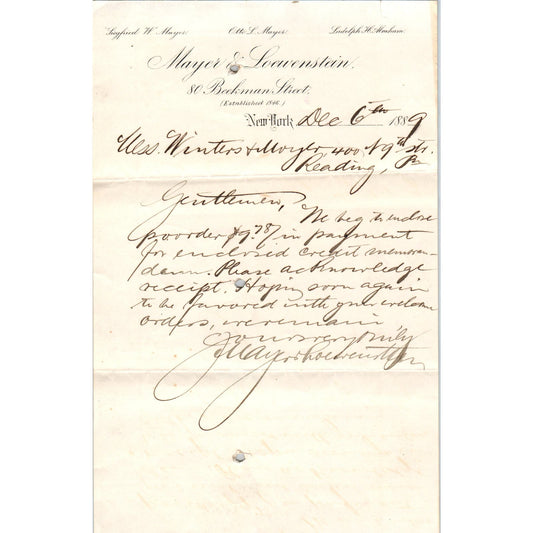 Siegfried W. Mayer. Otto L. Mayer. Ludolph H. Abraham.
Mayer & Loewenstein,
80 Beekman Street,
(Established 1846.)
New-York Dec 6th 1889
Mess. Winters & 400 N 9th str.
Reading, Pa
Gentlemen,
We beg to enclose
p.o. order $9.78/ in payment
for enclosed credit memoran-
dum. Please acknowledge
receipt. Hoping soon again
to be favored with your welcome
orders, we remain
Yours very truly
Mayer & Loewenstein